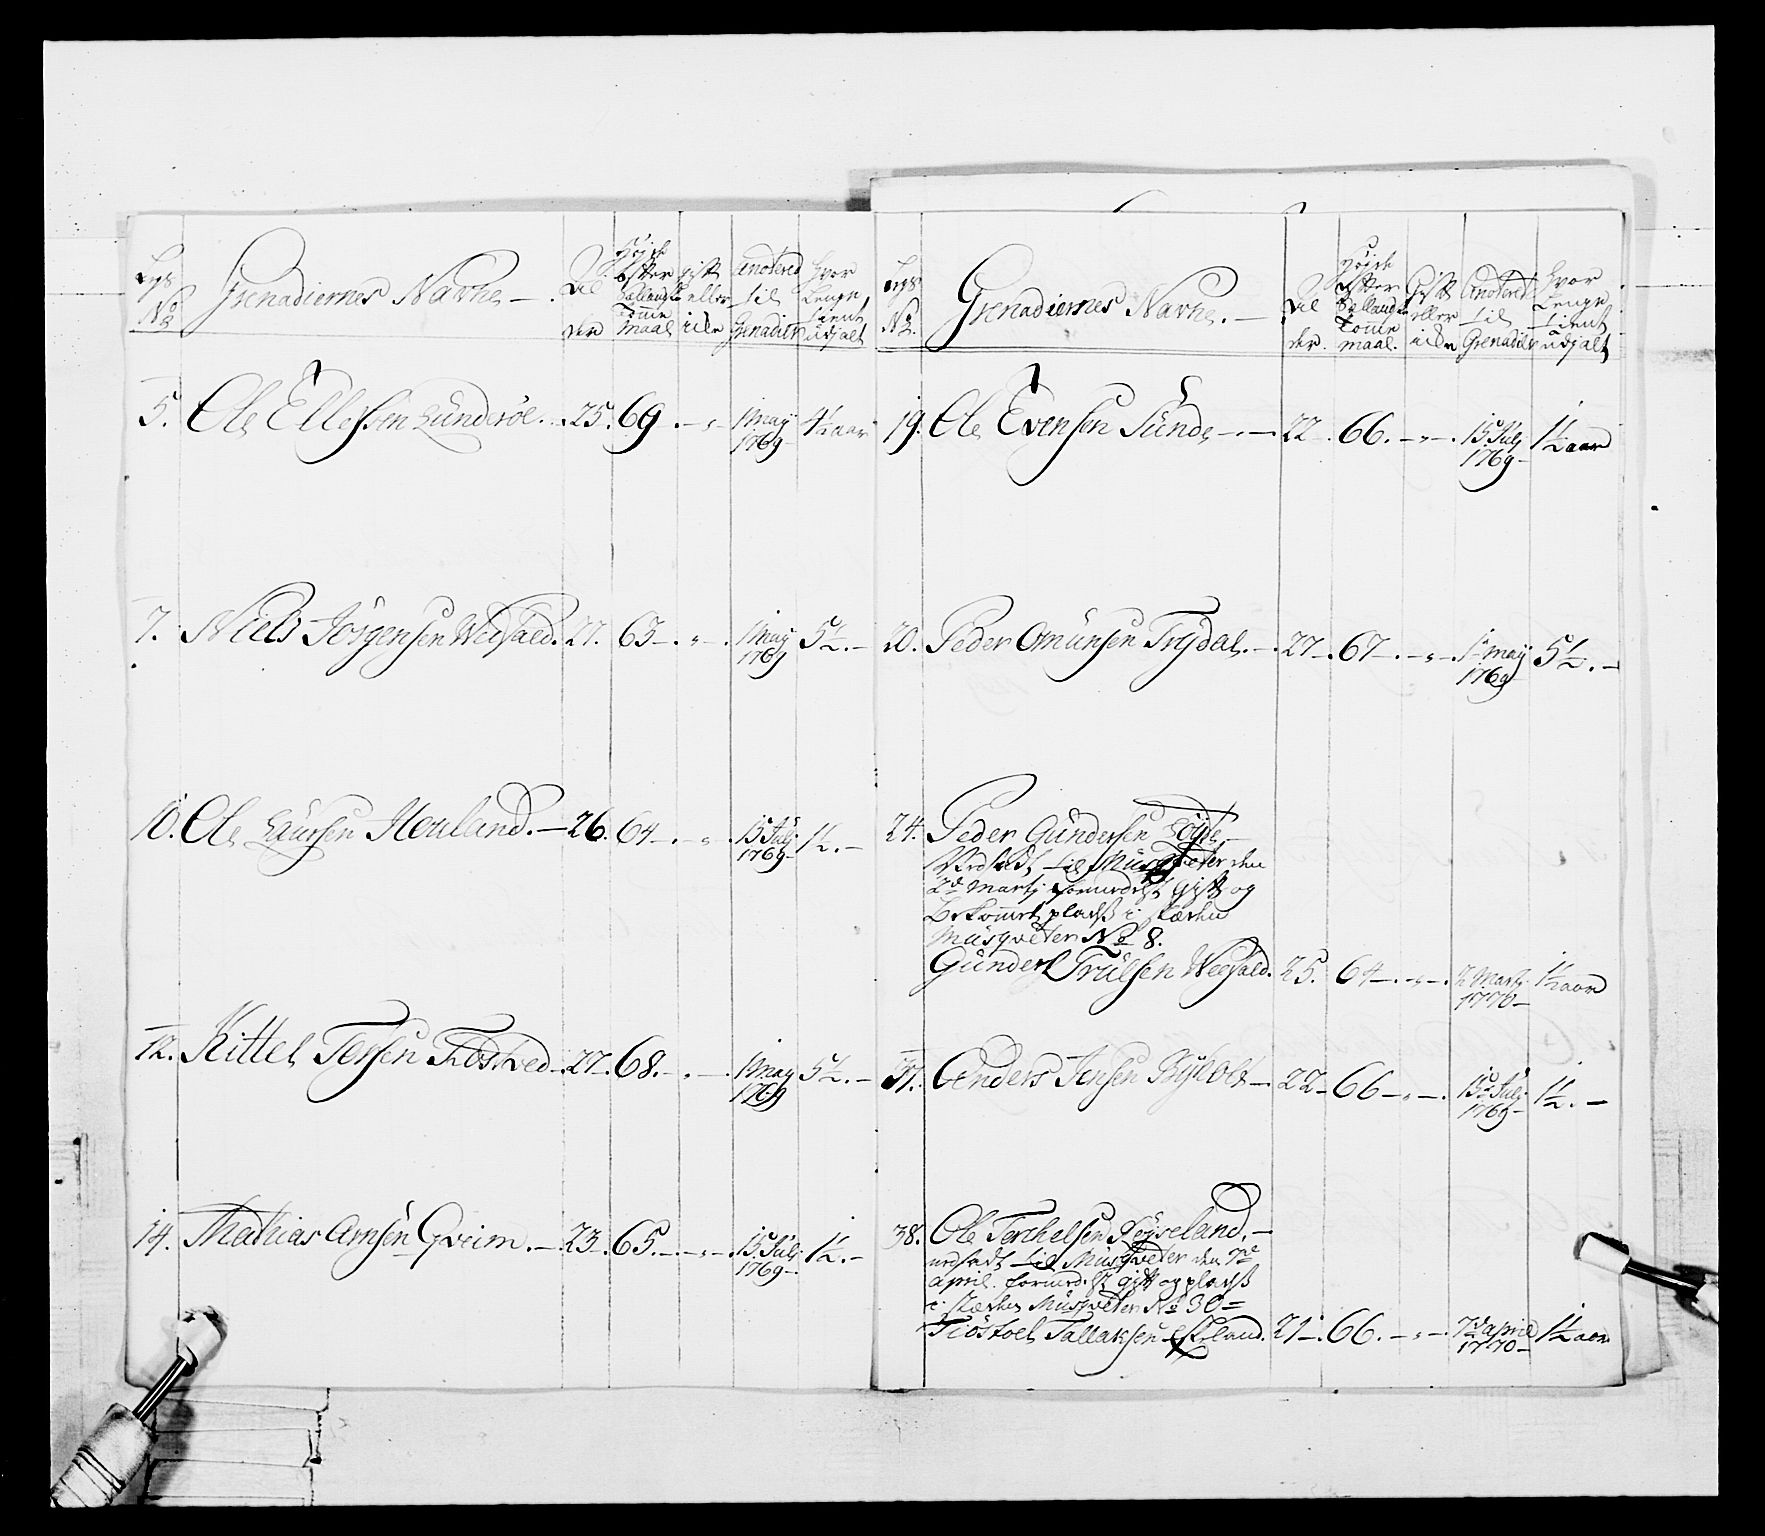 Legs No Grenadiernes Navne. Alder Høyde efter Sællandsk Tomme maal gift eller ei Anoterd til Grenadier hvor Lenge tient udj alt
5. Ole Ellefsen Lunderöe. 25. 69. 1 may 1769 4½ aar
7. Niels Jörgensen Weefald. 27. 63. 1 may 1769 5½.
10. Ole Laursen Houland. 26. 64. 15 July 1769 1½.
12. Kittel Tersen Kostved. 27. 68. 1 may 1769 5½.
14. Mathias Arnsen Qveim. 23. 65. 15 July 1769 1½.
Legs No Grenadiernes Navne. Alder. Høyde efter Sællandsk Tomme maal. Gift eller ei Anoterd til Grenadier hvor Lenge tient udj alt
19. Ole Evensen Sünde. 22. 66. 15 July 1769 1½ aar
20. Peder Omünsen Frydal. 27. 67. 1 may 1769 5½.
24. Peder Gündersen
udsadt til Müsqveter den
2d Marty formedelst gift og
Bekomet pladß i stæden
Müsqveter No 8.
Günder Trülsen Weefald. 25. 64. 2 Marty 1770 1½ aar
37. Anders Jensen Ryholt. 22. 66. 15 July 1769 1½.
38. Ole Terchelsen Röyseland.
udsadt til Müsqveter den 7de
april. formedelst gift og pladß
i stæden Müsqveter No 30
Tiöstoel Tallaksen Eskeland. 21. 66. 7d april 1770 1½ aar